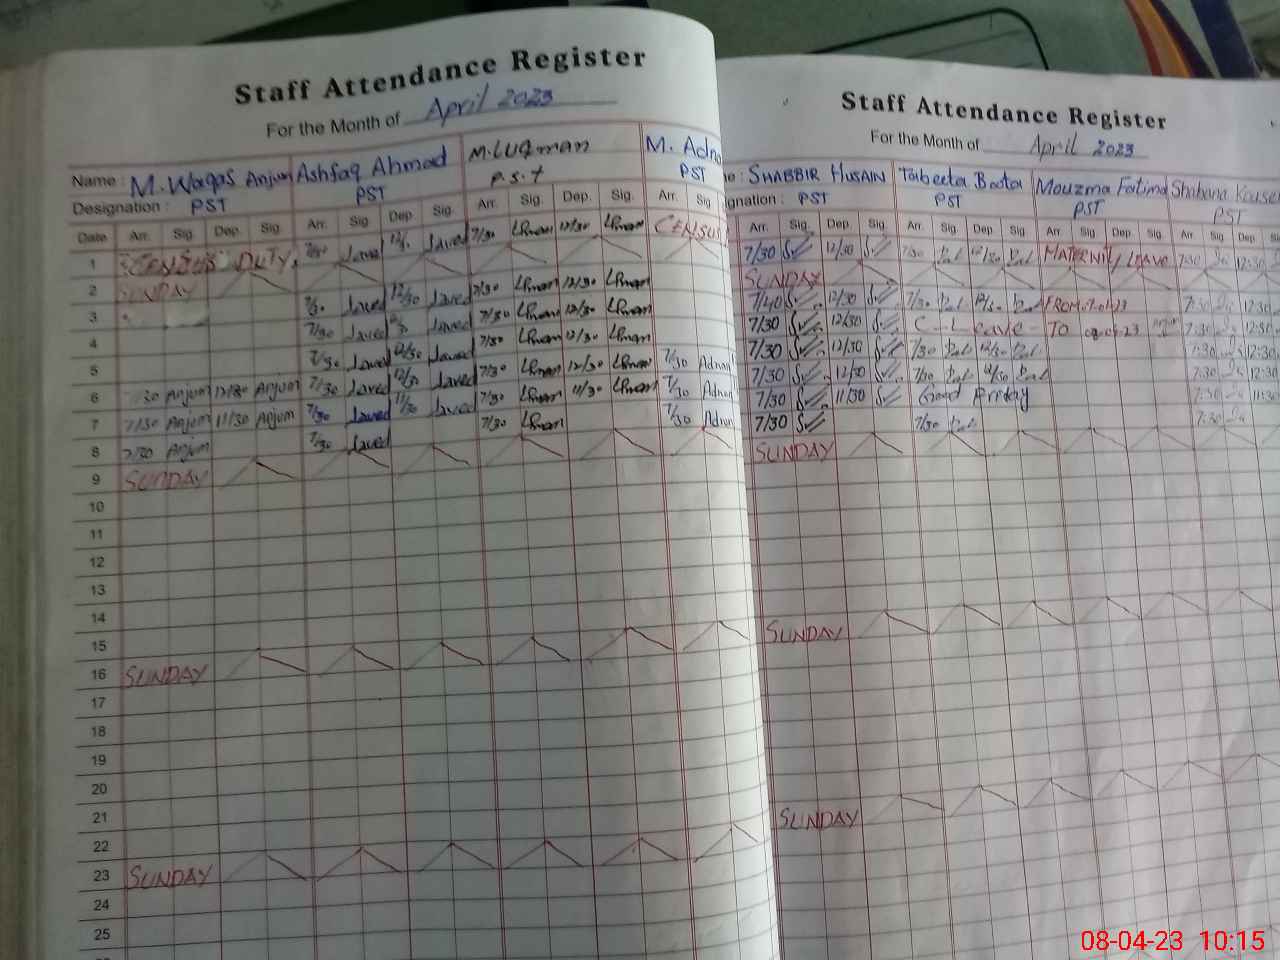 Staff Attendance Register
For the Month of April 2023
Name : M. Waqas Anjum Ashfaq Ahmad M. Luqman M. Adna
Designation : PST PST P.S.T PST
Date Arr. Sig. Dep. Sig. Arr. Sig. Dep. Sig. Arr. Sig. Dep. Sig. Arr. Sig
1 CENSUS DUTY. Javed Javed 7/30 LRman 12/30 LRman CENSUS
2 SUNDAY
3 Javed 12/30 Javed 7/30 LRman 12/30 LRman
4 7/30 Javed Javed 7/30 LRman 12/30 LRman
5 7/30 Javed 12/30 Javed 7/30 LRman 12/30 LRman
6 7/30 Anjum 12/30 Anjum 7/30 Javed 12/30 Javed 7/30 LRman 12/30 LRman 7/30 Adnan
7 7/30 Anjum 11/30 Anjum 7/30 Javed 11/30 Javed 7/30 LRman 11/30 LRman 7/30 Adnan
8 7/30 Anjum 7/30 Javed 7/30 LRman 7/30 Adnan
9 SUNDAY
10
11
12
13
14
15
16 SUNDAY
17
18
19
20
21
22
23 SUNDAY
24
25
Staff Attendance Register
For the Month of April 2023
e : SHABBIR HUSAIN Tabeeta Boota Mouzma Fatima Shabana Kouse
gnation : PST PST PST PST
Arr. Sig. Dep. Sig. Arr. Sig. Dep. Sig. Arr. Sig. Dep. Sig. Arr. Sig. Dep
7/30 12/30 7/30 12/30 MATERNITY LEAVE 7:30 12:30
SUNDAY
7/40 12/30 7/30 FROM 7:30 12:30
7/30 12/30 C-Leave - TO 7:30 12:30
7/30 12/30 7/30 12/30 7:30 12:30
7/30 12/30 7/30 12/30 7:30 12:30
7/30 11/30 Good Friday 7:30 11:30
7/30 7/30 7:30
SUNDAY
SUNDAY
SUNDAY
08-04-23 10:15